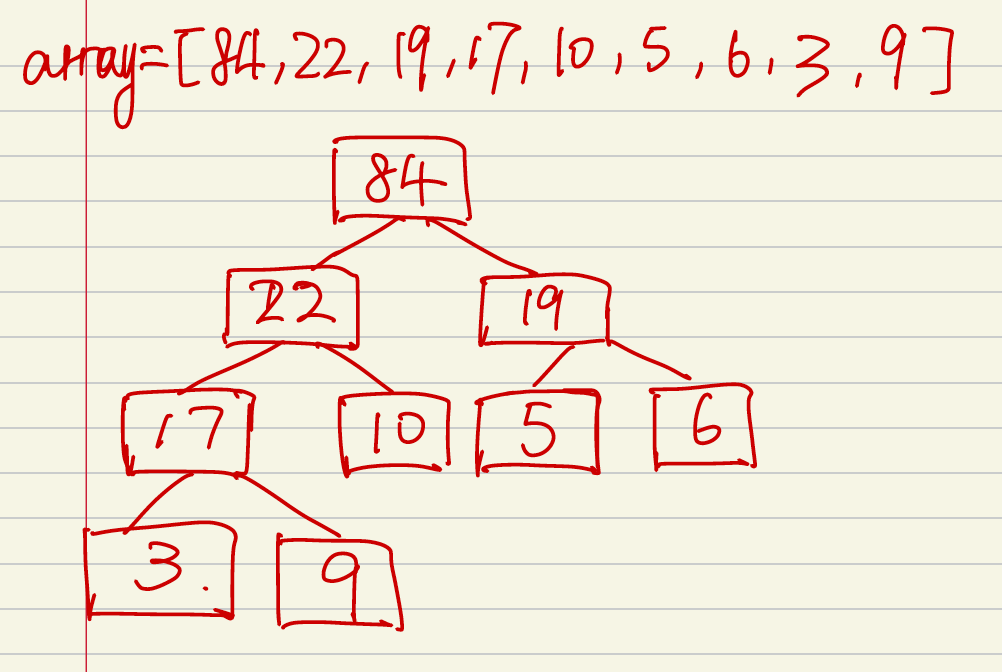 array=[84,22,19,17,10,5,6,3,9]
84
22 19
17 10 5 6
3. 9